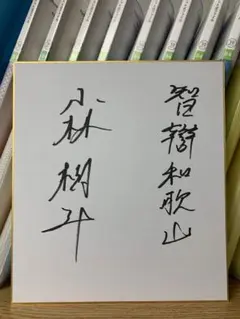 智辯和歌山
小林樹斗